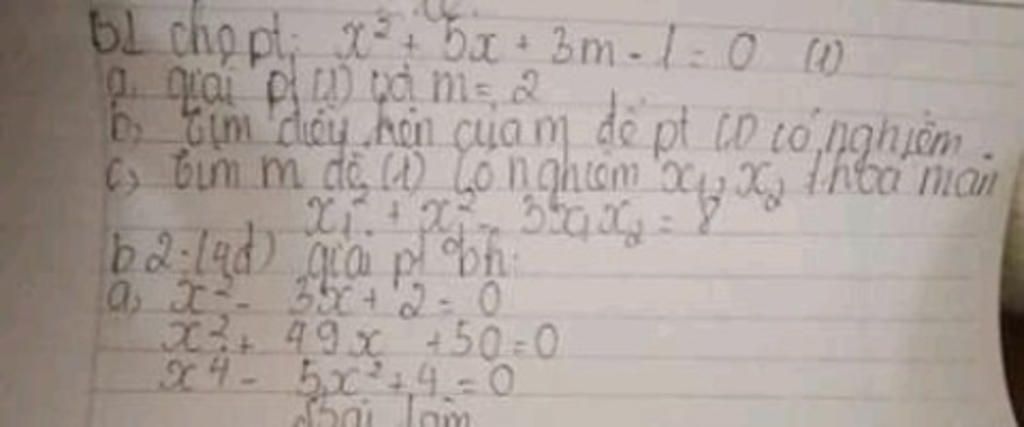 b1 cho pt: x² + 5x + 3m - 1 = 0 (1)
a, giải pt (1) với m = 2
b, tìm điều kiện của m để pt (1) có nghiệm
c, tìm m để (1) có nghiệm x₁, x₂ thỏa mãn
x₁² + x₂² - 3x₁x₂ = 8
b2: (4đ) giải pt
a, x² - 3x + 2 = 0
x² + 49x + 50 = 0
x⁴ - 5x² + 4 = 0
Bài làm